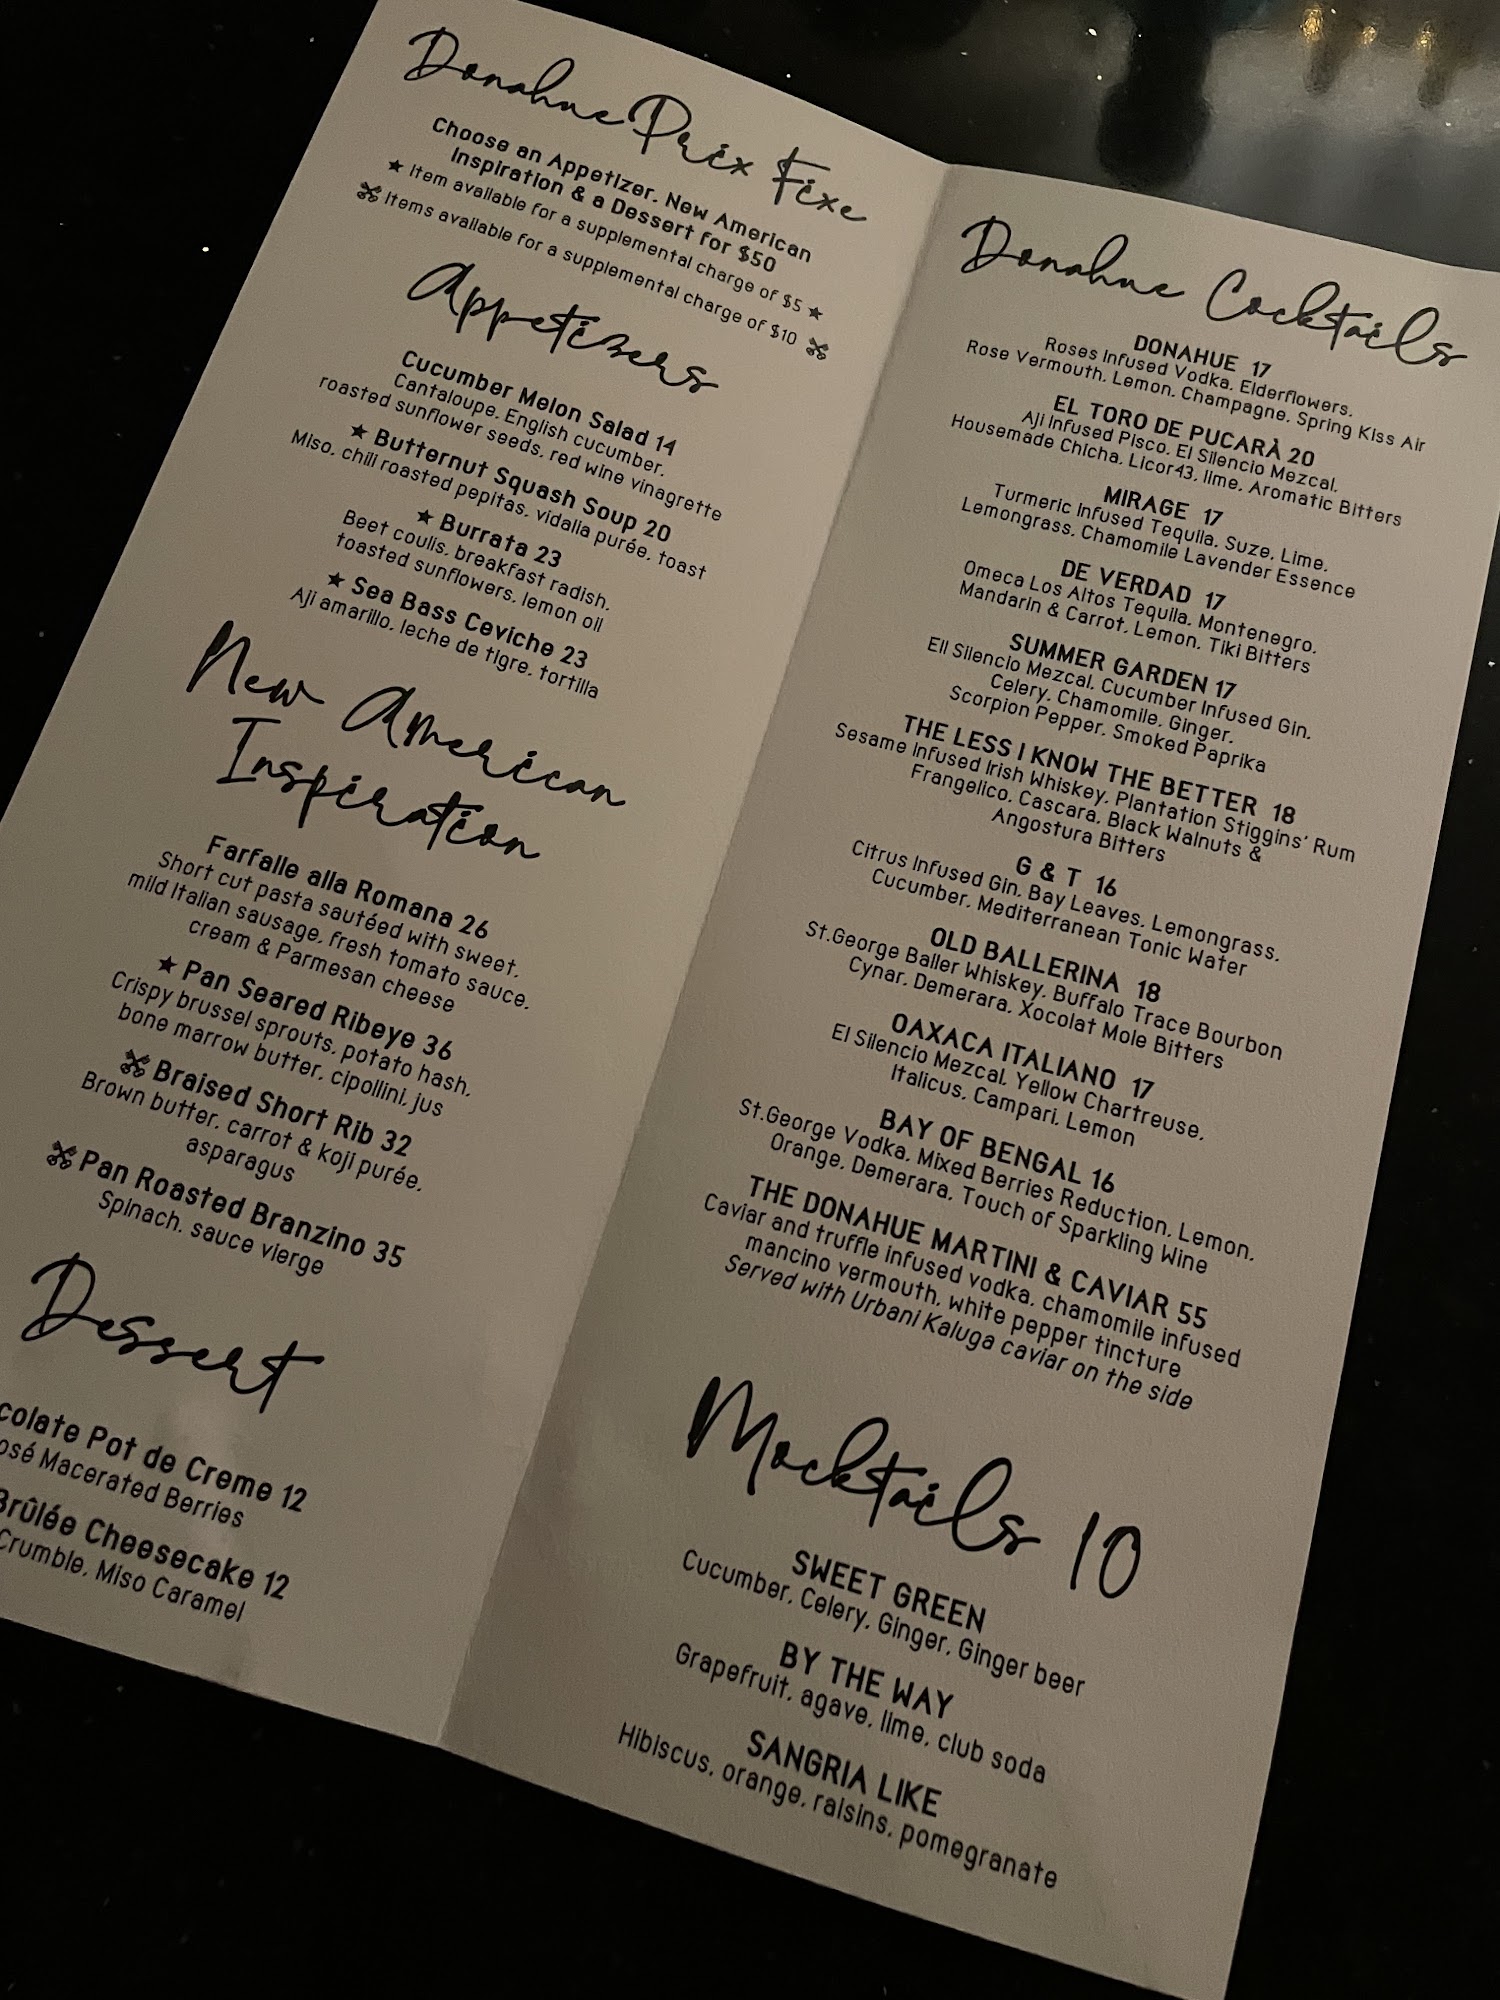 Donahue Prix Fixe
Choose an Appetizer, New American
Inspiration & a Dessert for $50
★ Item available for a supplemental charge of $5 ★
Items available for a supplemental charge of $10
Appetizers
Cucumber Melon Salad 14
Cantaloupe, English cucumber,
roasted sunflower seeds, red wine vinagrette
★ Butternut Squash Soup 20
Miso, chili roasted pepitas, vidalia purée, toast
★ Burrata 23
Beet coulis, breakfast radish,
toasted sunflowers, lemon oil
★ Sea Bass Ceviche 23
Aji amarillo, leche de tigre, tortilla
New American
Inspiration
Farfalle alla Romana 26
Short cut pasta sautéed with sweet,
mild Italian sausage, fresh tomato sauce,
cream & Parmesan cheese
★ Pan Seared Ribeye 36
Crispy brussel sprouts, potato hash,
bone marrow butter, cipollini, jus
Braised Short Rib 32
Brown butter, carrot & koji purée,
asparagus
Pan Roasted Branzino 35
Spinach, sauce vierge
Dessert
Pot de Creme 12
Macerated Berries
Brûlée Cheesecake 12
Crumble, Miso Caramel
Donahue Cocktails
DONAHUE 17
Roses Infused Vodka, Elderflowers,
Rose Vermouth, Lemon, Champagne, Spring Kiss Air
EL TORO DE PUCARÀ 20
Aji Infused Pisco, El Silencio Mezcal,
Housemade Chicha, Licor43, lime, Aromatic Bitters
MIRAGE 17
Turmeric Infused Tequila, Suze, Lime,
Lemongrass, Chamomile Lavender Essence
DE VERDAD 17
Omeca Los Altos Tequila, Montenegro,
Mandarin & Carrot, Lemon, Tiki Bitters
SUMMER GARDEN 17
Ell Silencio Mezcal, Cucumber Infused Gin,
Celery, Chamomile, Ginger,
Scorpion Pepper, Smoked Paprika
THE LESS I KNOW THE BETTER 18
Sesame Infused Irish Whiskey, Plantation Stiggins' Rum
Frangelico, Cascara, Black Walnuts &
Angostura Bitters
G & T 16
Citrus Infused Gin, Bay Leaves, Lemongrass,
Cucumber, Mediterranean Tonic Water
OLD BALLERINA 18
St.George Baller Whiskey, Buffalo Trace Bourbon
Cynar, Demerara, Xocolat Mole Bitters
OAXACA ITALIANO 17
El Silencio Mezcal, Yellow Chartreuse,
Italicus, Campari, Lemon
BAY OF BENGAL 16
St.George Vodka, Mixed Berries Reduction, Lemon,
Orange, Demerara, Touch of Sparkling Wine
THE DONAHUE MARTINI & CAVIAR 55
Caviar and truffle infused vodka, chamomile infused
mancino vermouth, white pepper tincture
Served with Urbani Kaluga caviar on the side
Mocktails 10
SWEET GREEN
Cucumber, Celery, Ginger, Ginger beer
BY THE WAY
Grapefruit, agave, lime, club soda
SANGRIA LIKE
Hibiscus, orange, raisins, pomegranate